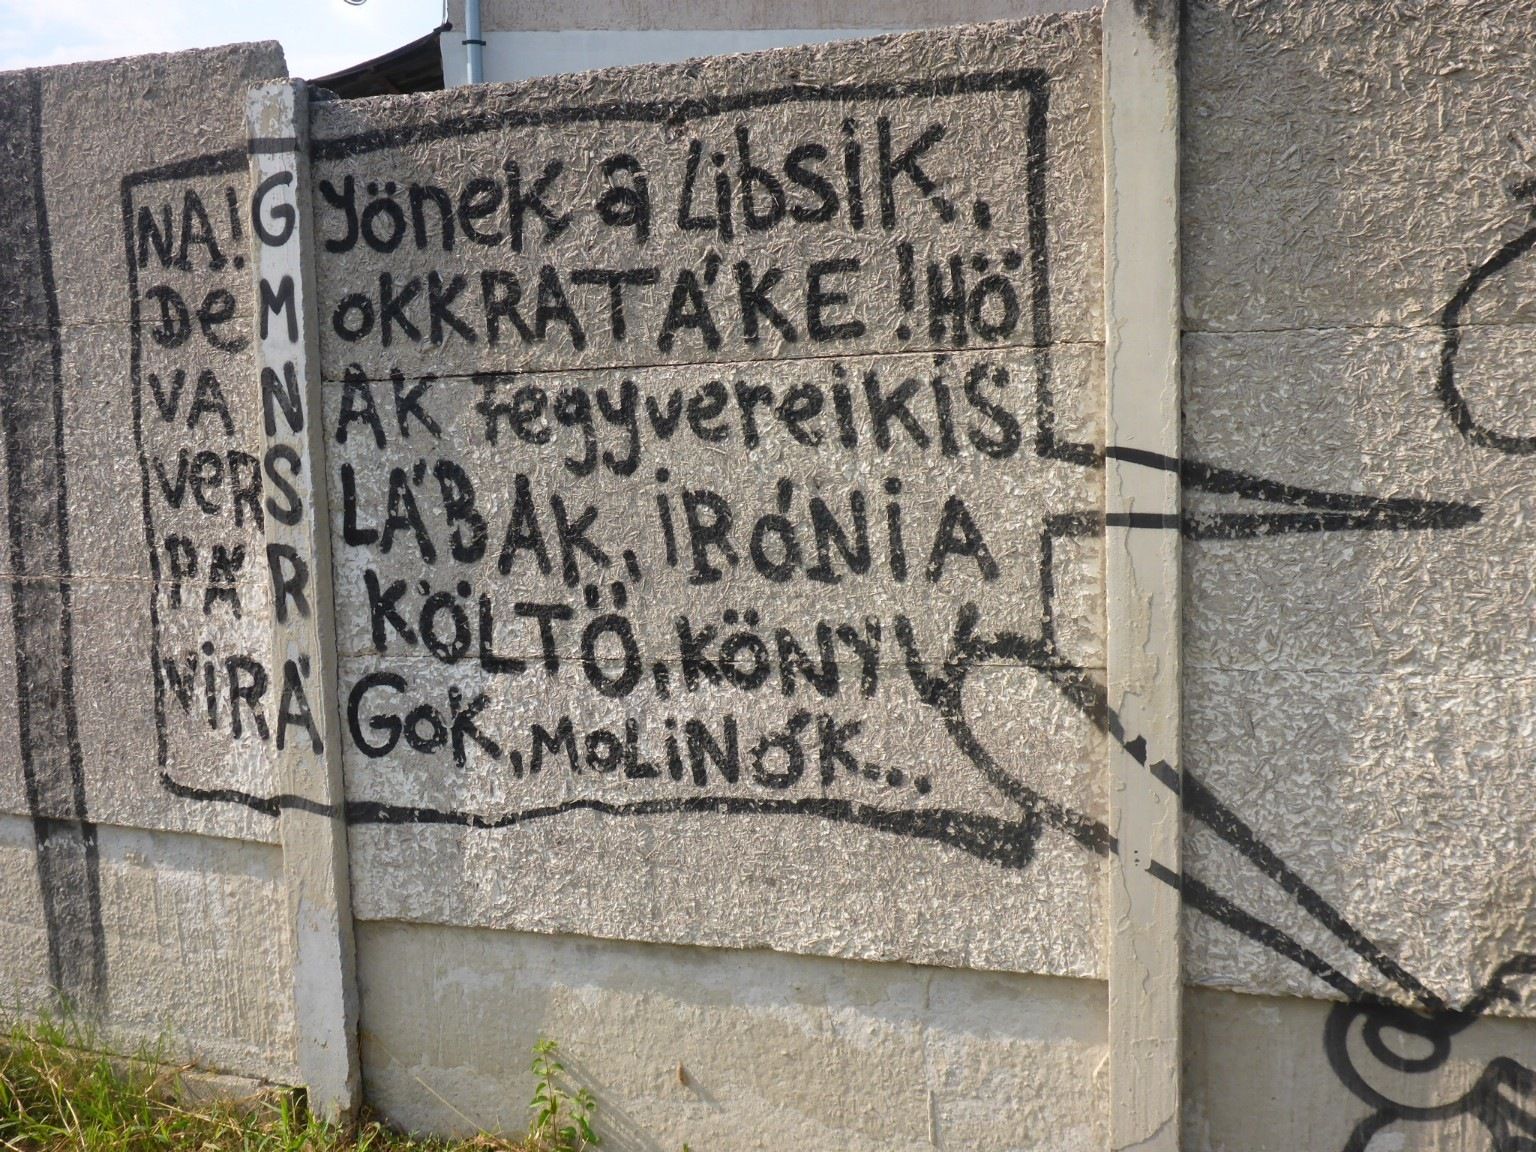 NA! Gyönek a Libsik,
DeMoKKRATÁKE! HÖ
VANAK FegyvereikiS
VeRSLÁBAK, iRÓNiA
PÁR KÖLTÖ, KÖNYV
ViRÁGoK, MoLiNÓK...